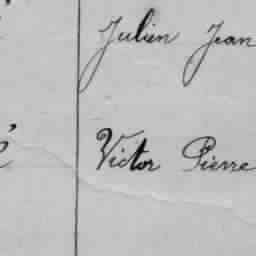 Julien Jean
Victor Pierre